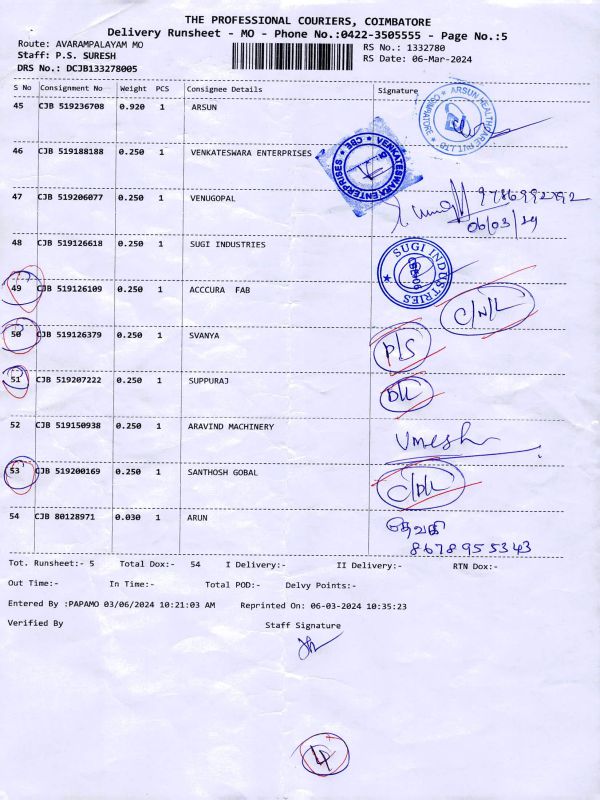 THE PROFESSIONAL COURIERS, COIMBATORE
Delivery Runsheet - MO - Phone No.:0422-3505555 - Page No.:5
Route: AVARAMPALAYAM MO
Staff: P.S. SURESH
DRS No.: DCJB133278005
RS No.: 1332780
RS Date: 06-Mar-2024
S No Consignment No Weight PCS Consignee Details Signature
45 CJB 519236708 0.920 1 ARSUN
ARSUN HEALTHCARE PVT. LTD. COIMBATORE
46 CJB 519188188 0.250 1 VENKATESWARA ENTERPRISES
VENKATESWARA ENTERPRISES CBE
47 CJB 519206077 0.250 1 VENUGOPAL
06/03/24
48 CJB 519126618 0.250 1 SUGI INDUSTRIES
SUGI INDUSTRIES
49 CJB 519126109 0.250 1 ACCCURA FAB C/N/L
50 CJB 519126379 0.250 1 SVANYA P/S
51 CJB 519207222 0.250 1 SUPPURAJ D/L
52 CJB 519150938 0.250 1 ARAVIND MACHINERY Umesh
53 CJB 519200169 0.250 1 SANTHOSH GOBAL C/D/L
54 CJB 80128971 0.030 1 ARUN தேவகி
8678955343
Tot. Runsheet:- 5 Total Dox:- 54 I Delivery:- II Delivery:- RTN Dox:-
Out Time:- In Time:- Total POD:- Delvy Points:-
Entered By :PAPAMO 03/06/2024 10:21:03 AM Reprinted On: 06-03-2024 10:35:23
Verified By Staff Signature
4